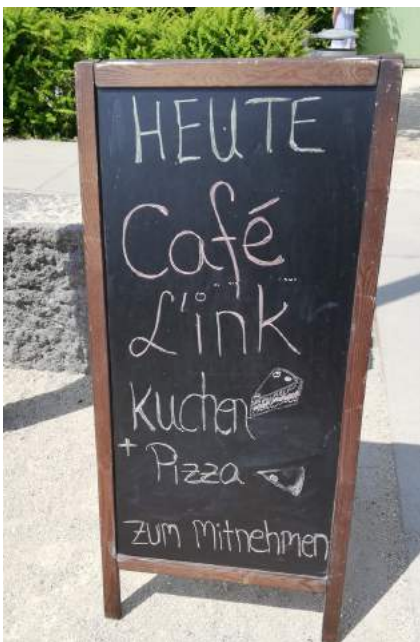 HEUTE
Café
L'ink
Kuchen
+ Pizza
zum Mitnehmen